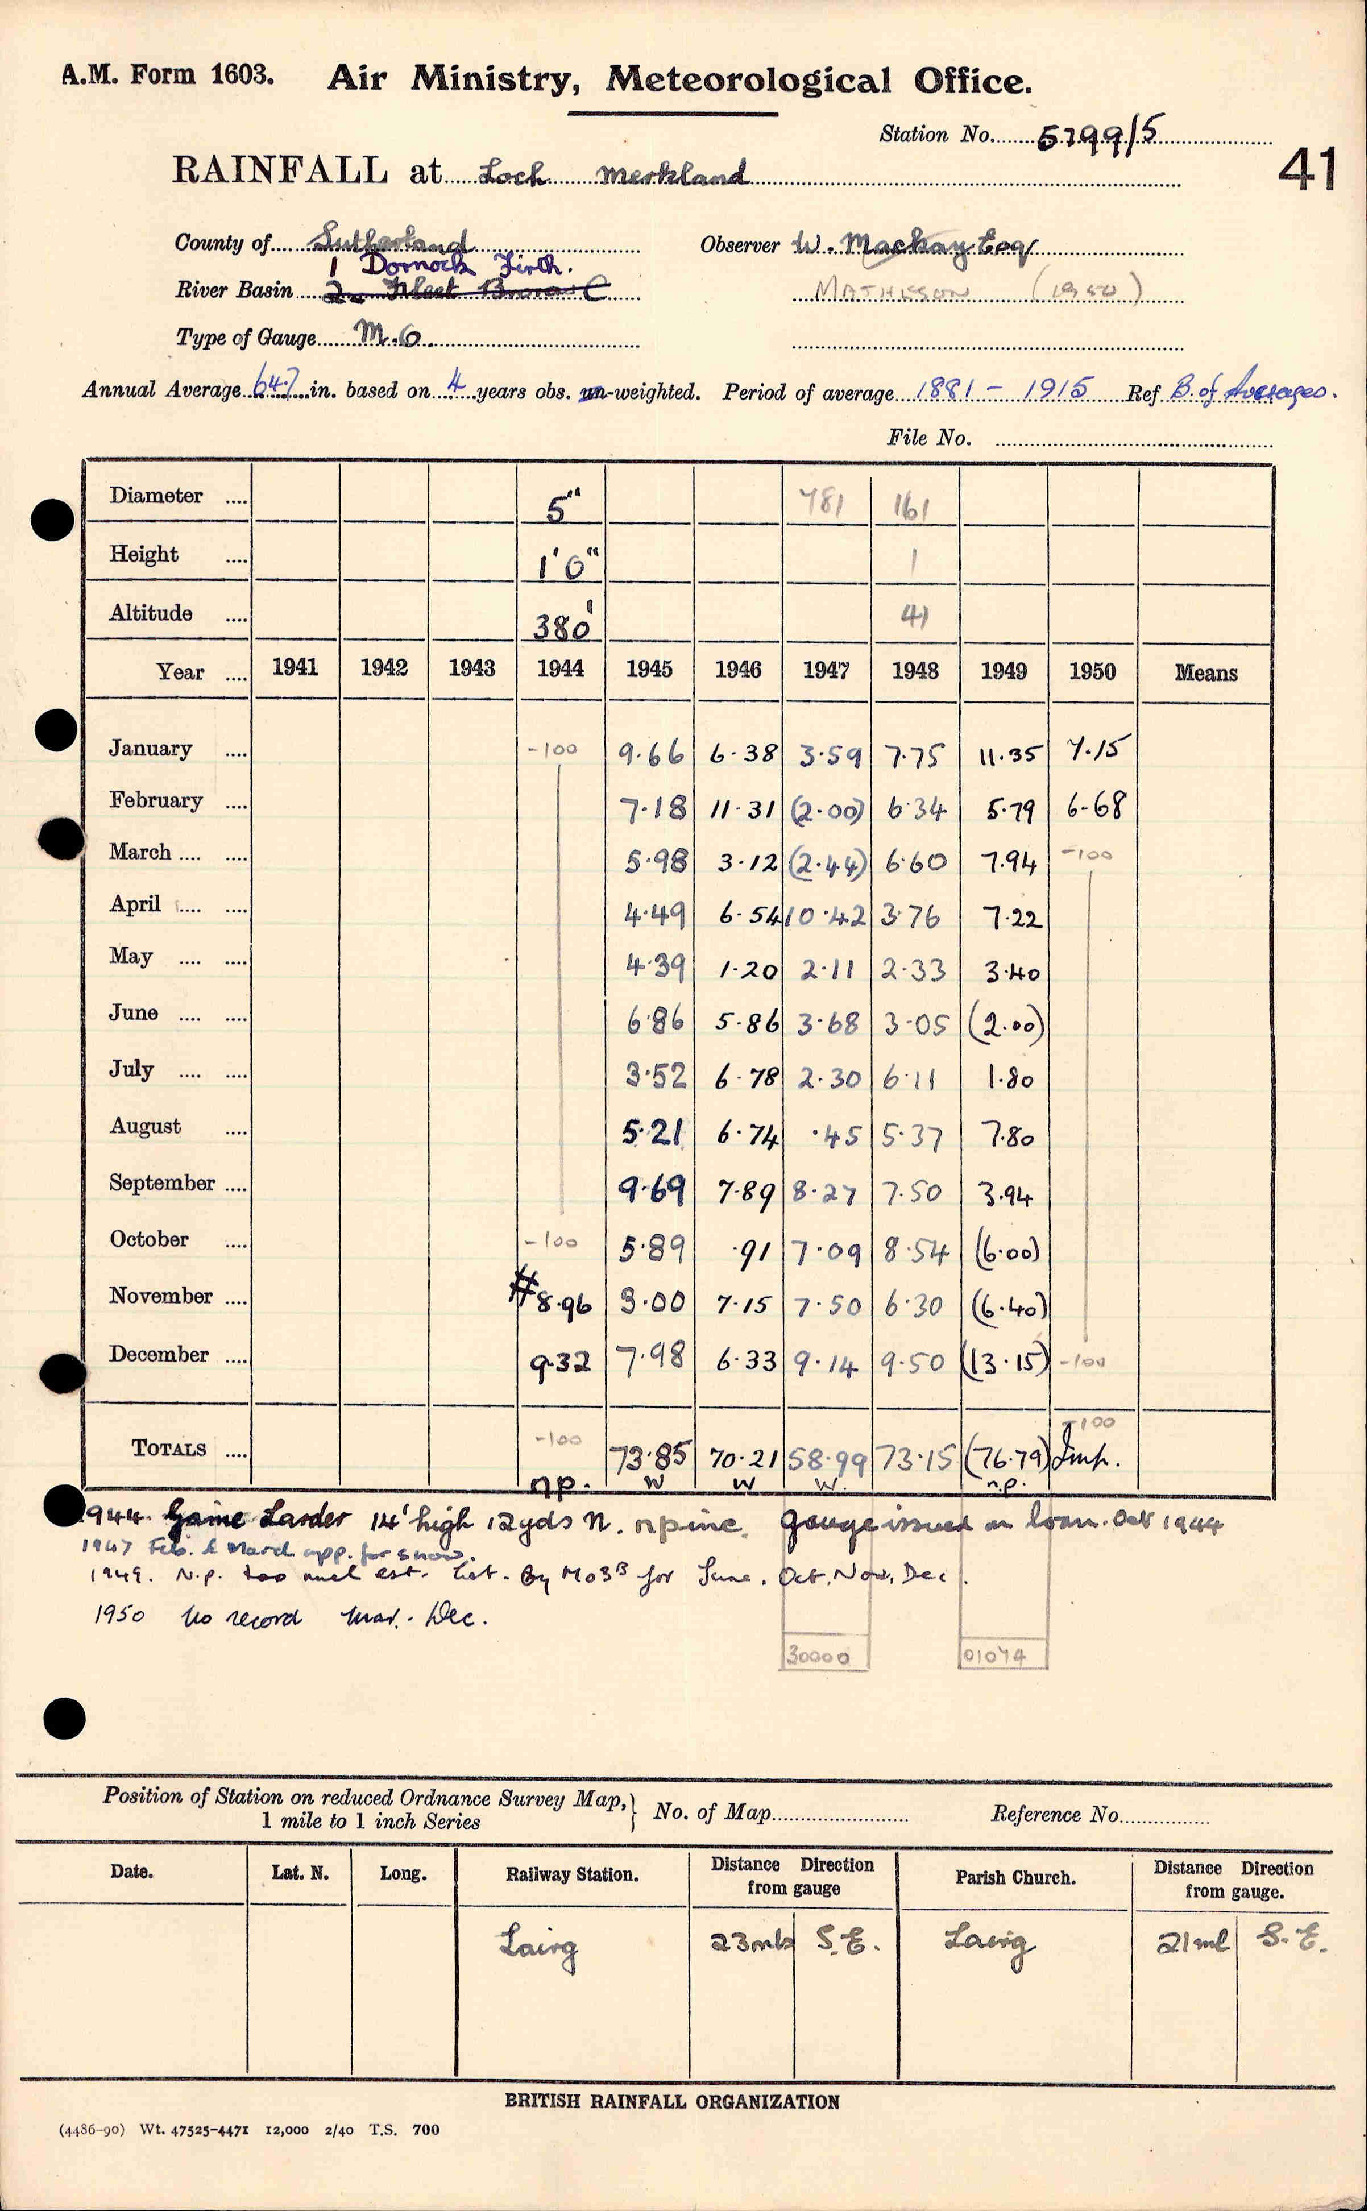 A.M. Form 1603. Air Ministry, Meteorological Office.
Station No. 5799/5
41
RAINFALL at Loch Merkland
County of Sutherland Observer W. Mackay Esq
1 Dornock Firth.
River Basin 2. Fleet Brora C MATHESON (1950)
Type of Gauge M.O.
Annual Average 64.7 in. based on 4 years obs. un-weighted. Period of average 1881 - 1915 Ref B. of Averages.
File No.
Diameter .... 5" 781 161
Height .... 1' 0" 1
Altitude .... 380' 41
Year .... 1941 1942 1943 1944 1945 1946 1947 1948 1949 1950 Means
January .... -100 9.66 6.38 3.59 7.75 11.35 7.15
February .... 7.18 11.31 (2.00) 6.34 5.79 6.68
March .... .... 5.98 3.12 (2.44) 6.60 7.94 -100
April .... .... 4.49 6.54 10.42 3.76 7.22
May .... .... 4.39 1.20 2.11 2.33 3.40
June .... .... 6.86 5.86 3.68 3.05 (2.00)
July .... .... 3.52 6.78 2.30 6.11 1.80
August .... 5.21 6.74 .45 5.37 7.80
September .... 9.69 7.89 8.27 7.50 3.94
October .... -100 5.89 .91 7.09 8.54 (6.00)
November .... # 8.96 3.00 7.15 7.50 6.30 (6.40)
December .... 9.32 7.98 6.33 9.14 9.50 (13.15) -100
-100 -100
TOTALS .... 73.85 70.21 58.99 73.15 (76.79) Imp.
n.p. w w w. n.p.
1944. Game Larder 14' high 12yds N. n p inc. gauge issued on loan. Oct 1944
1947 Feb. & March app. for snow.
1949. N.p. too much est. Est. By MO3B for June, Oct, Nov, Dec.
1950 No record Mar. - Dec.
30000 01074
Position of Station on reduced Ordnance Survey Map, } No. of Map Reference No.
1 mile to 1 inch Series
Date. Lat. N. Long. Railway Station. Distance Direction from gauge Parish Church. Distance Direction from gauge.
Lairg 23mls S.E. Lairg 21ml S.E.
BRITISH RAINFALL ORGANIZATION
(4486-90) Wt. 47525-4471 12,000 2/40 T.S. 700